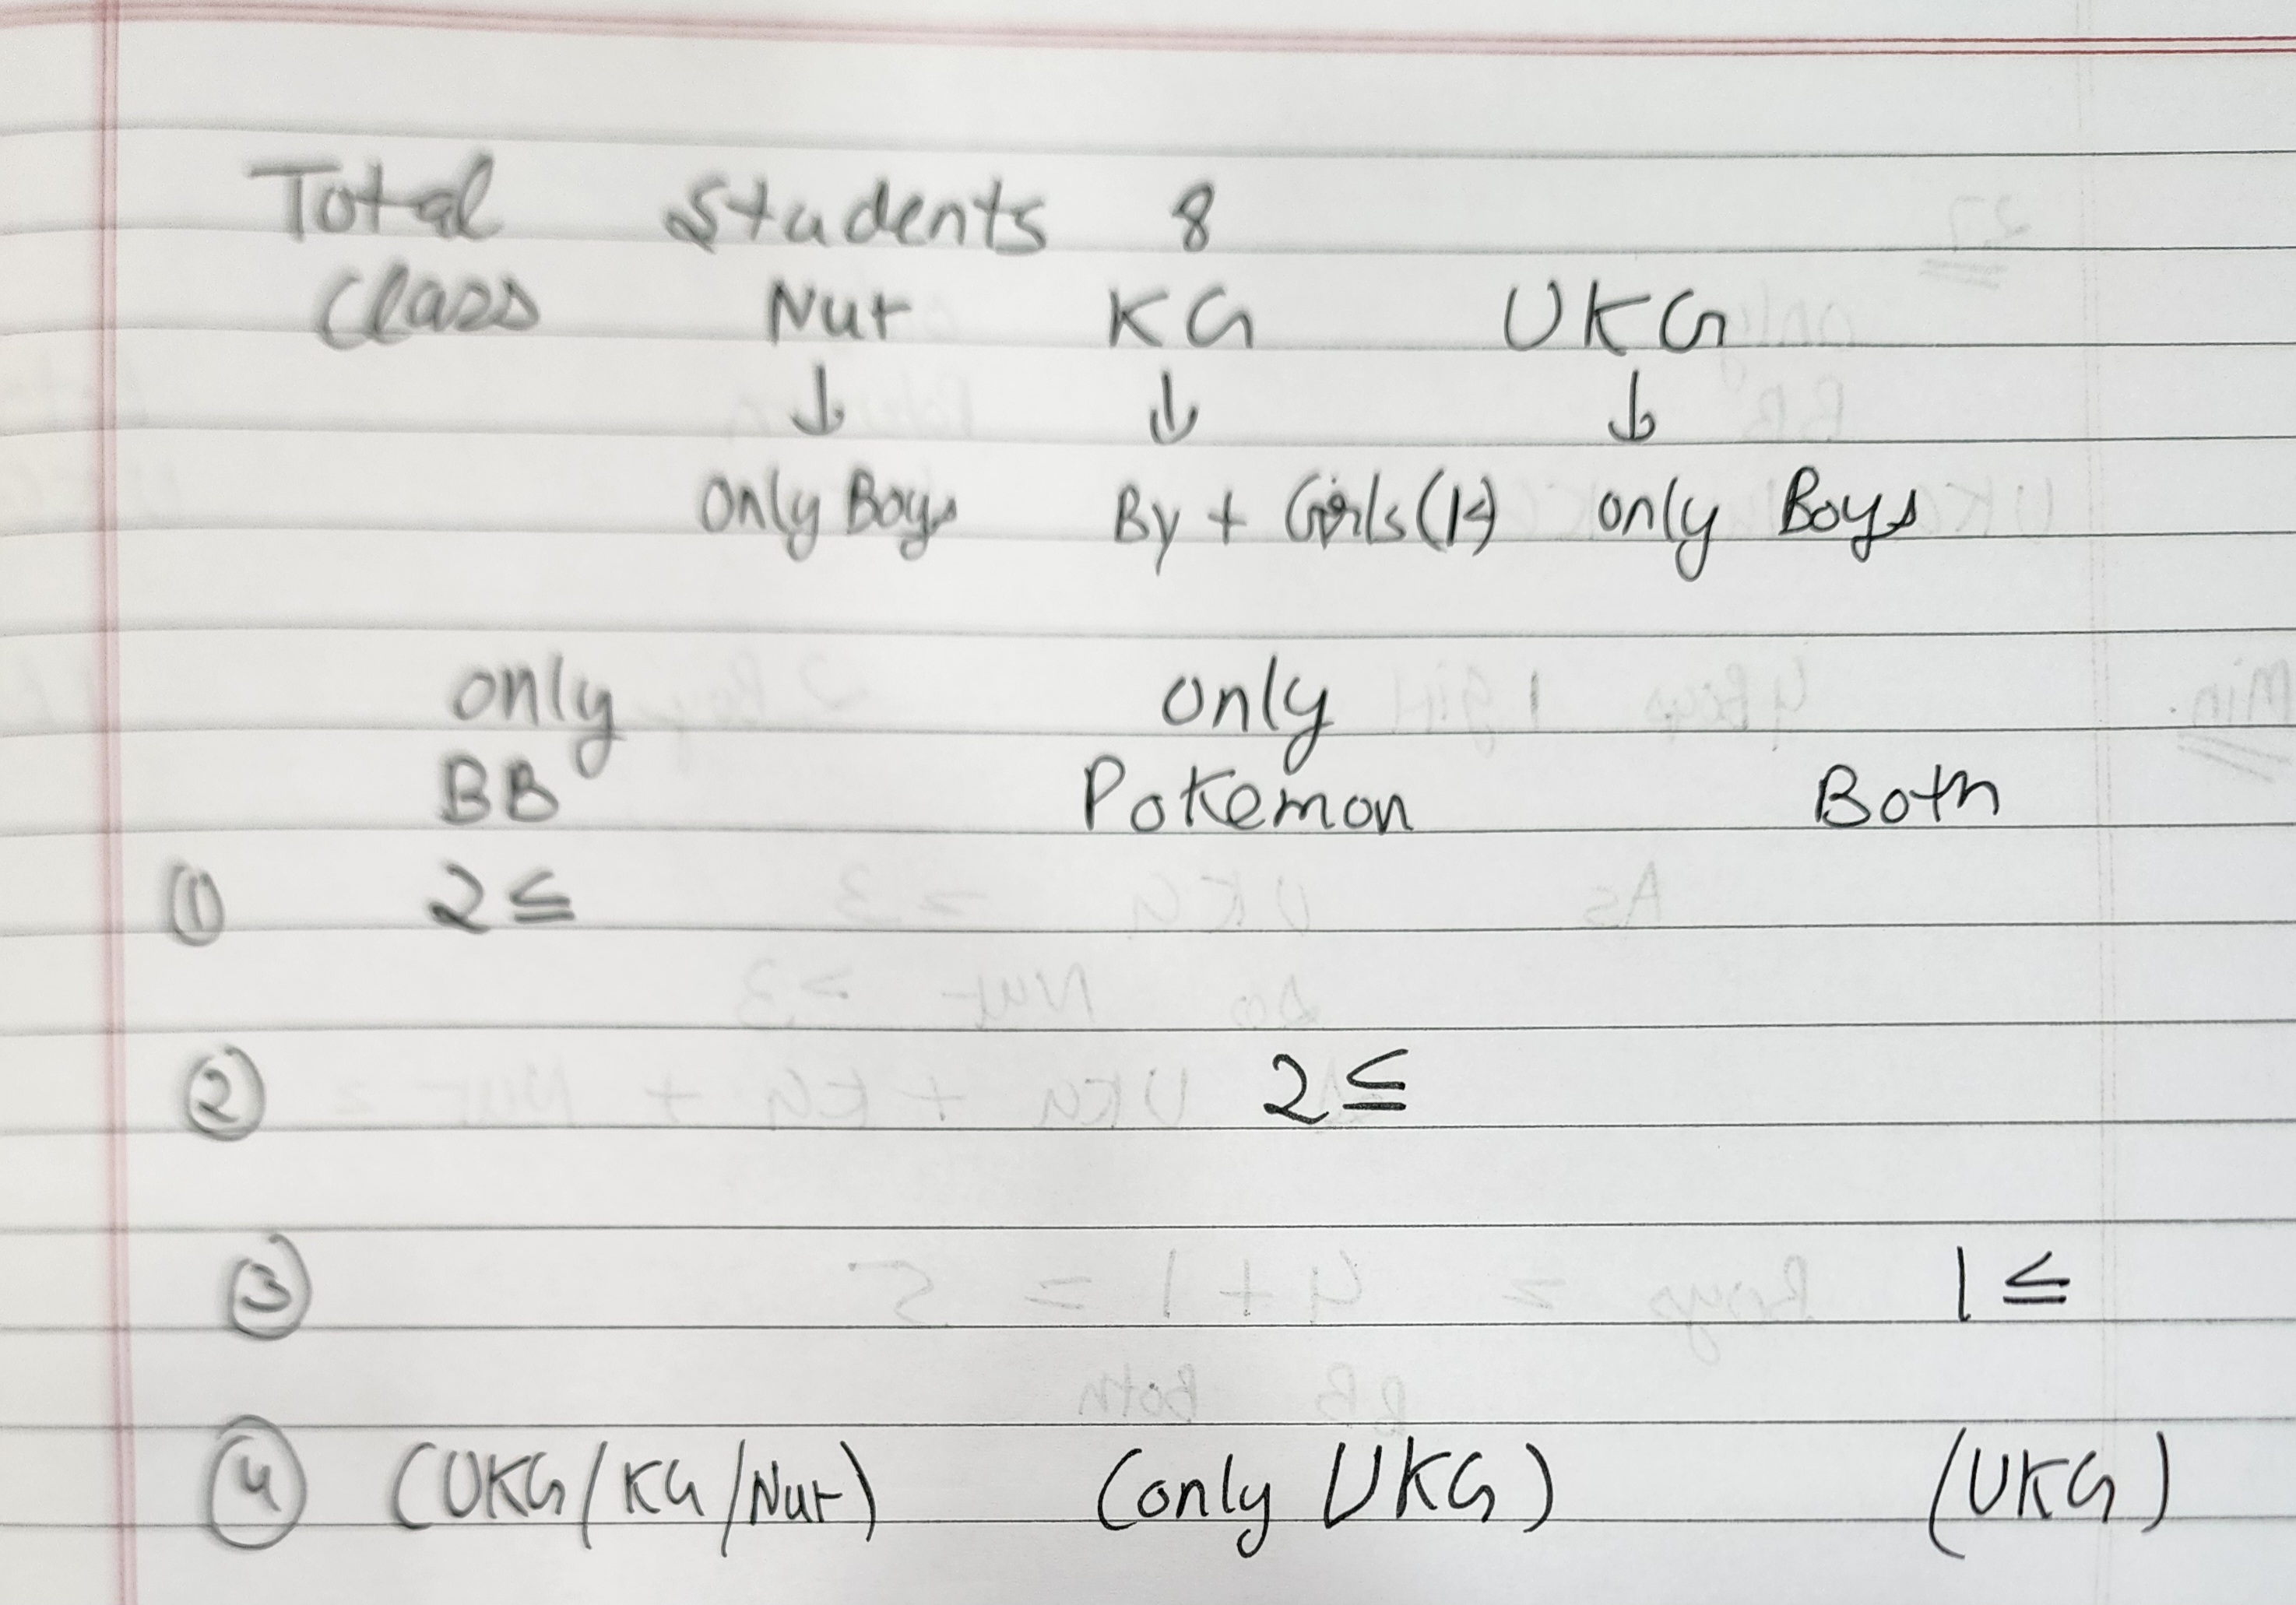 Total Students 8
Class Nur KG UKG
↓ ↓ ↓
Only Boys By + Girls (1≤) only Boys
only only
BB Pokemon Both
① 2≤
② 2≤
③ 1≤
④ (UKG/KG/Nur) (only UKG) (UKG)